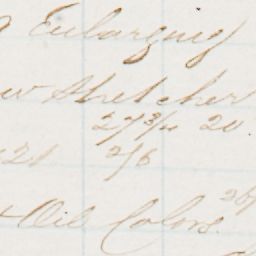 Enlarging
Stretcher
27 3/4 20
21 2/6
Oil Colors.